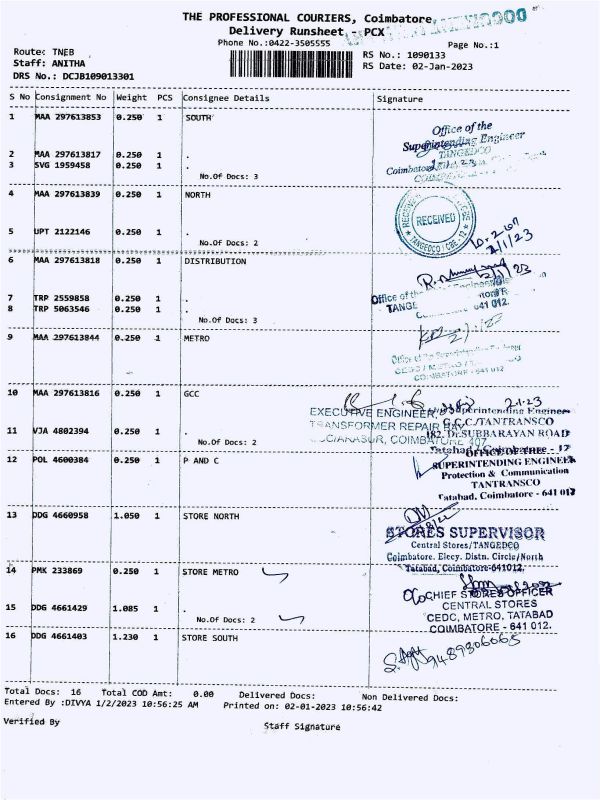 THE PROFESSIONAL COURIERS, Coimbatore,
Delivery Runsheet - PCX
Phone No.:0422-3505555
Page No.:1
Route: TNEB
Staff: ANITHA
DRS No.: DCJB109013301
RS No.: 1090133
RS Date: 02-Jan-2023
S No Consignment No Weight PCS Consignee Details Signature
1 MAA 297613853 0.250 1 SOUTH
2 MAA 297613817 0.250 1 .
3 SVG 1959458 0.250 1 .
No.Of Docs: 3
Office of the
Superintending Engineer
TANGEDCO
4 MAA 297613839 0.250 1 NORTH
5 UPT 2122146 0.250 1 .
No.Of Docs: 2
RECEIVED
TANGEDCO / CBE
2/1/23
6 MAA 297613818 0.250 1 DISTRIBUTION
7 TRP 2559858 0.250 1 .
8 TRP 5063546 0.250 1 .
No.Of Docs: 3
2/1/23
Office of the
641 012.
9 MAA 297613844 0.250 1 METRO
COIMBATORE - 641 012
10 MAA 297613816 0.250 1 GCC
11 VJA 4802394 0.250 1 .
No.Of Docs: 2
2.1.23
EXECUTIVE ENGINEER,
TRANSFORMER REPAIR BAY
Superintending Engineer
G.C.C/TANTRANSCO
182, Dr.SUBBARAYAN ROAD
12 POL 4600384 0.250 1 P AND C
OFFICE OF THE
SUPERINTENDING ENGINEER
Protection & Communication
TANTRANSCO
Tatabad, Coimbatore - 641 012
13 DDG 4660958 1.050 1 STORE NORTH
STORES SUPERVISOR
Central Stores/TANGEDCO
Coimbatore. Elecy. Distn. Circle/North
Tatabad, Coimbatore-641012.
14 PMK 233869 0.250 1 STORE METRO
15 DDG 4661429 1.085 1 .
No.Of Docs: 2
CHIEF STORES OFFICER
CENTRAL STORES
CEDC, METRO, TATABAD
COIMBATORE - 641 012.
16 DDG 4661403 1.230 1 STORE SOUTH
9489306065
Total Docs: 16 Total COD Amt: 0.00 Delivered Docs: Non Delivered Docs:
Entered By :DIVYA 1/2/2023 10:56:25 AM Printed on: 02-01-2023 10:56:42
Verified By
Staff Signature